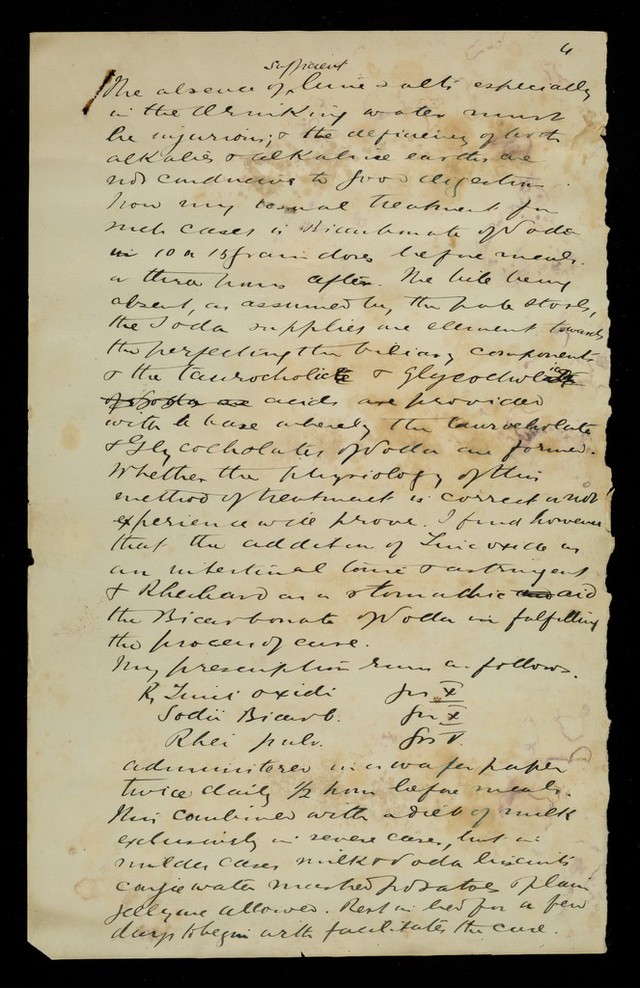 4
sufficient
The absence of lime salts especially
in the drinking water must
be injurious; & the deficiency of both
alkalies & alkaline earths are
not conducive to good digestion.
Now my usual treatment for
such cases is Bicarbonate of Soda
in 10 or 15 grain doses before meals.
or three hours after. The bile being
absent, as assumed by the pale stools,
the Soda supplies one element towards
the perfecting the biliary components
& the taurocholic & Glycocholic
of Soda are acids are provided
with a base whereby the taurocholate
& Glycocholates of Soda are formed.
Whether the physiology of this
method of treatment is correct or not
experience will prove. I find however
that the addition of Zinc oxide as
an intestinal tonic & astringent
& Rheubarb as a stomachic and aid
the Bicarbonate of Soda in fulfilling
the process of cure.
My prescription runs as follows.
℞ Zinci oxidi grs X
Sodii Bicarb. grs X
Rhei pulv. grs V.
administered in a wafer paper
twice daily 1/2 hour before meals.
This combined with a diet of milk
exclusively in severe cases, but in
milder cases milk & Soda biscuits
conjie water mashed potatoes & plain
jelly are allowed. Rest in bed for a few
days to begin with facilitates the cure.